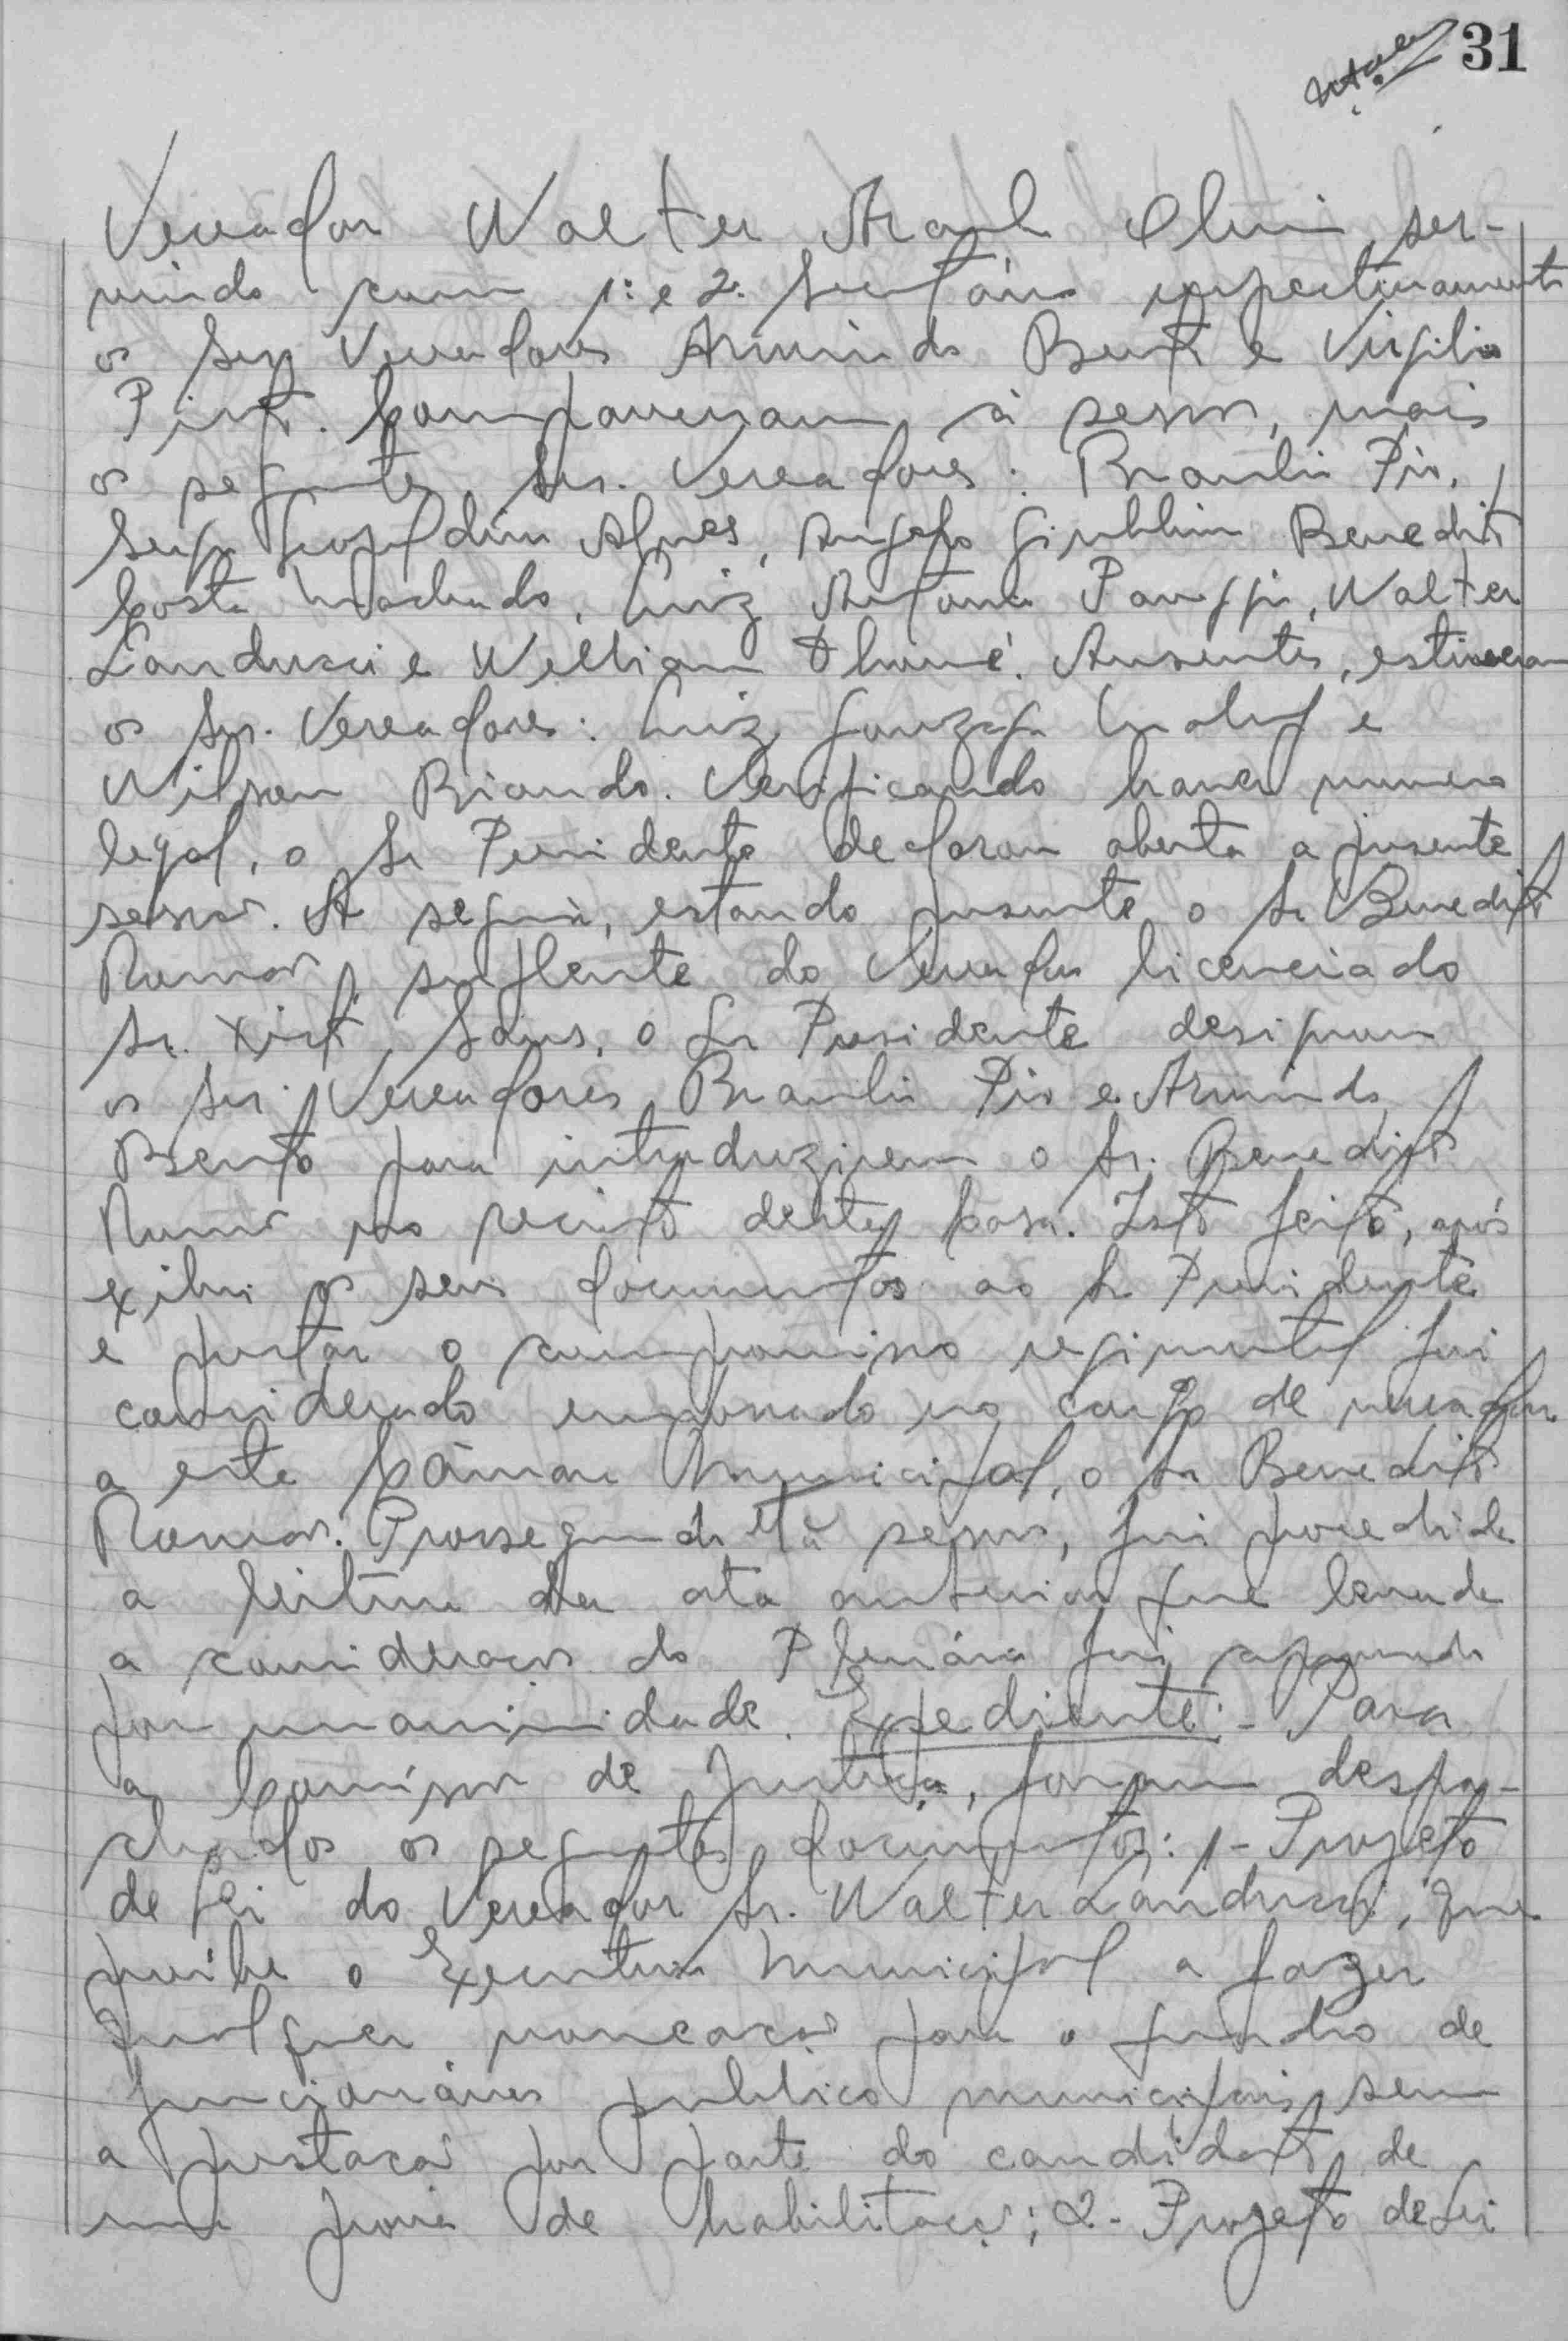 31
Vereador Walter Abrahão, ser-
vindo como 1º e 2º Secretários respectivamente
os Srs Vereadores Armindo Bento e Virgilio
Pinto. Compareceram à sessão, mais
os seguintes Srs. Vereadores: Braulio Pio,
Alves, Angelo Benedito
Costa Machado, Luiz Antonio, Walter
Landucci e William Thomé. Ausentes, estiveram
os Srs. Vereadores: Luiz Gonzaga Maluf e
Wilson Biondo. Verificando haver numero
legal, o Sr Presidente declarou aberta a presente
sessão. A seguir, estando presente o Sr Benedito
Romão, suplente do Vereador licenciado
Sr. Xisto, o Sr Presidente designou
os Srs. Vereadores Braulio Pio e Armindo
Bento para introduzirem o Sr. Benedito
Romão no recinto desta Casa. Isto feito, após
exibir os seus documentos ao Sr Presidente
e prestar o compromisso regimental foi
considerado empossado no cargo de vereador
a esta Câmara Municipal, o Sr Benedito
Romão. Prosseguindo a sessão, foi procedida
a leitura da ata anterior que levada
a consideração do Plenário foi aprovada
por unanimidade. Expediente:- Para
a Comissão de Justiça, foram despa-
chados os seguintes documentos: 1- Projeto
de lei do Vereador Sr. Walter Landucci, que
proibe o Executivo Municipal a fazer
qualquer nomeação para o quadro de
funcionários publico municipais sem
a prestação por parte do candidato de
uma prova de habilitação; 2- Projeto de Lei